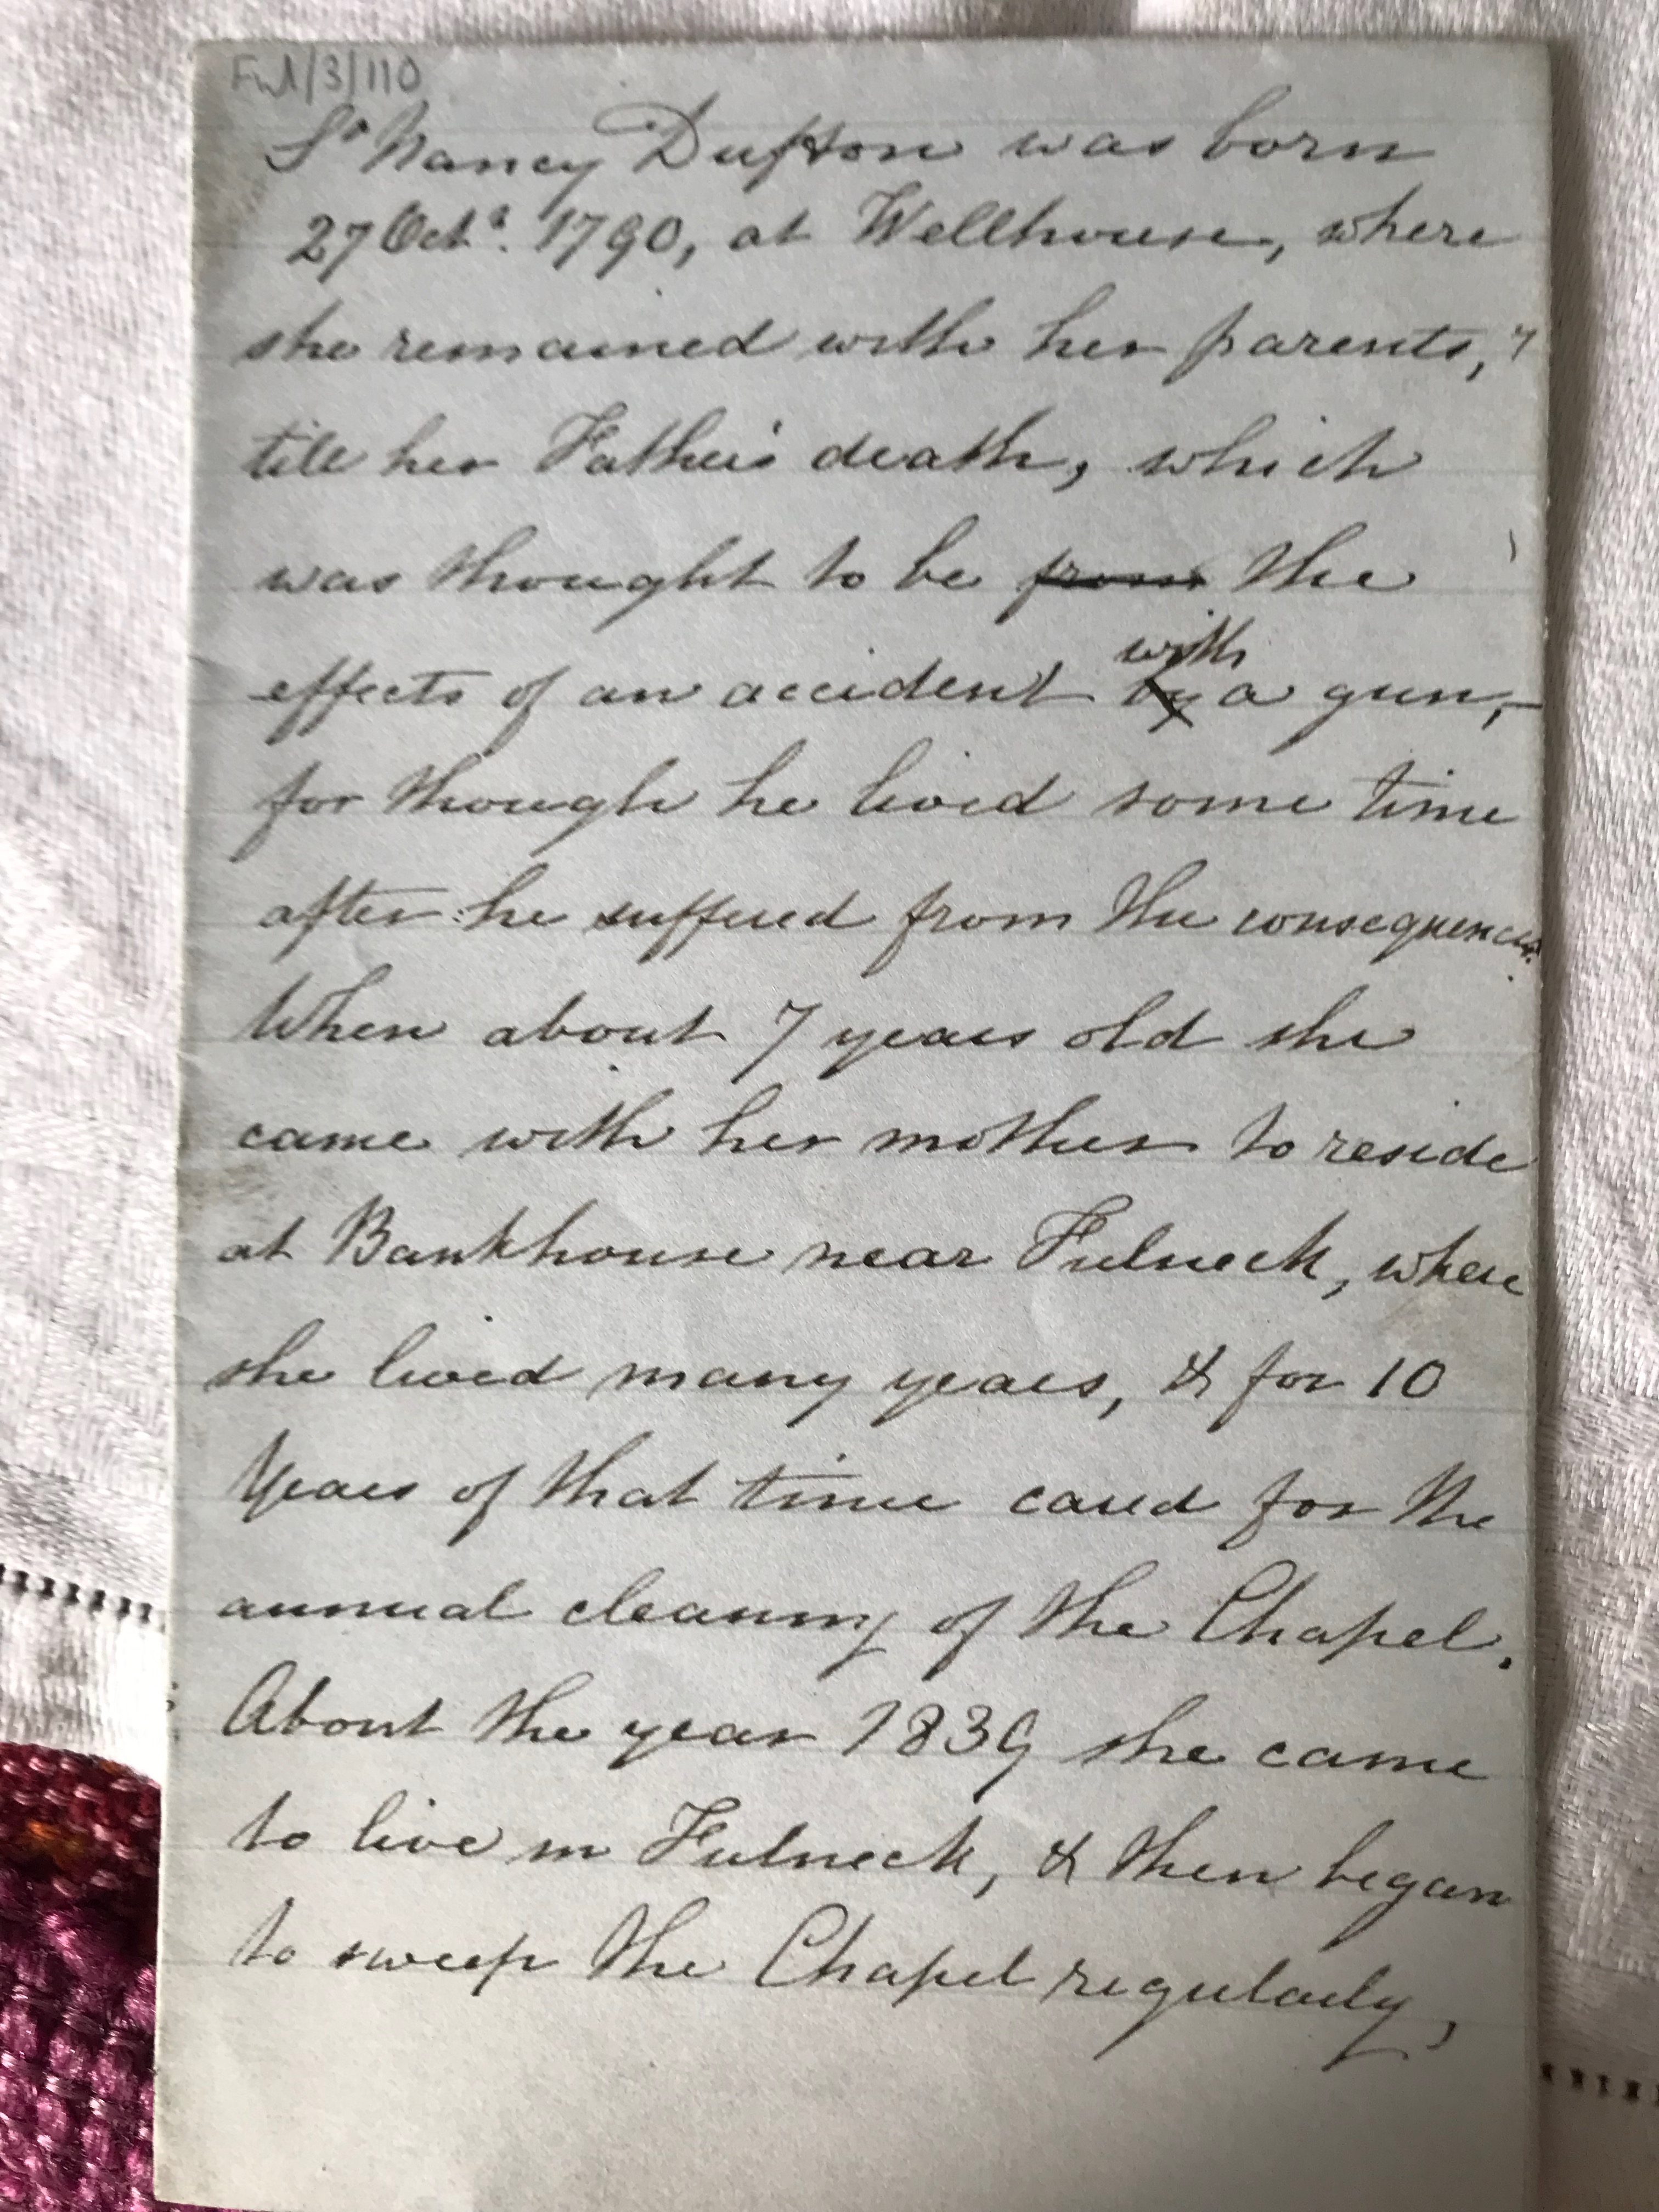 Ful/3/110
Sr Nancy Dufton was born
27 Octr. 1790, at Wellhouse, where
she remained with her parents,
till her Father's death, which
was thought to be from the
with
effects of an accident by a gun,
for though he lived some time
after he suffered from the consequences.
When about 7 years old she
came with her mother to reside
at Bankhouse near Fulneck, where
she lived many years, & for 10
Years of that time cared for the
annual cleaning of the Chapel.
About the year 1839 she came
to live in Fulneck, & then began
to sweep the Chapel regularly,